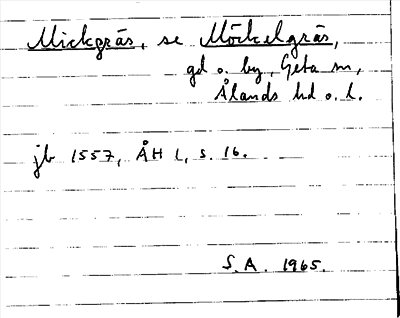 Mickgräs, se Mörkelgräs,
gd o. by, Geta sn,
Ålands hd o. l.
jb 1557, ÅH 1, s. 16.
S.A. 1965.